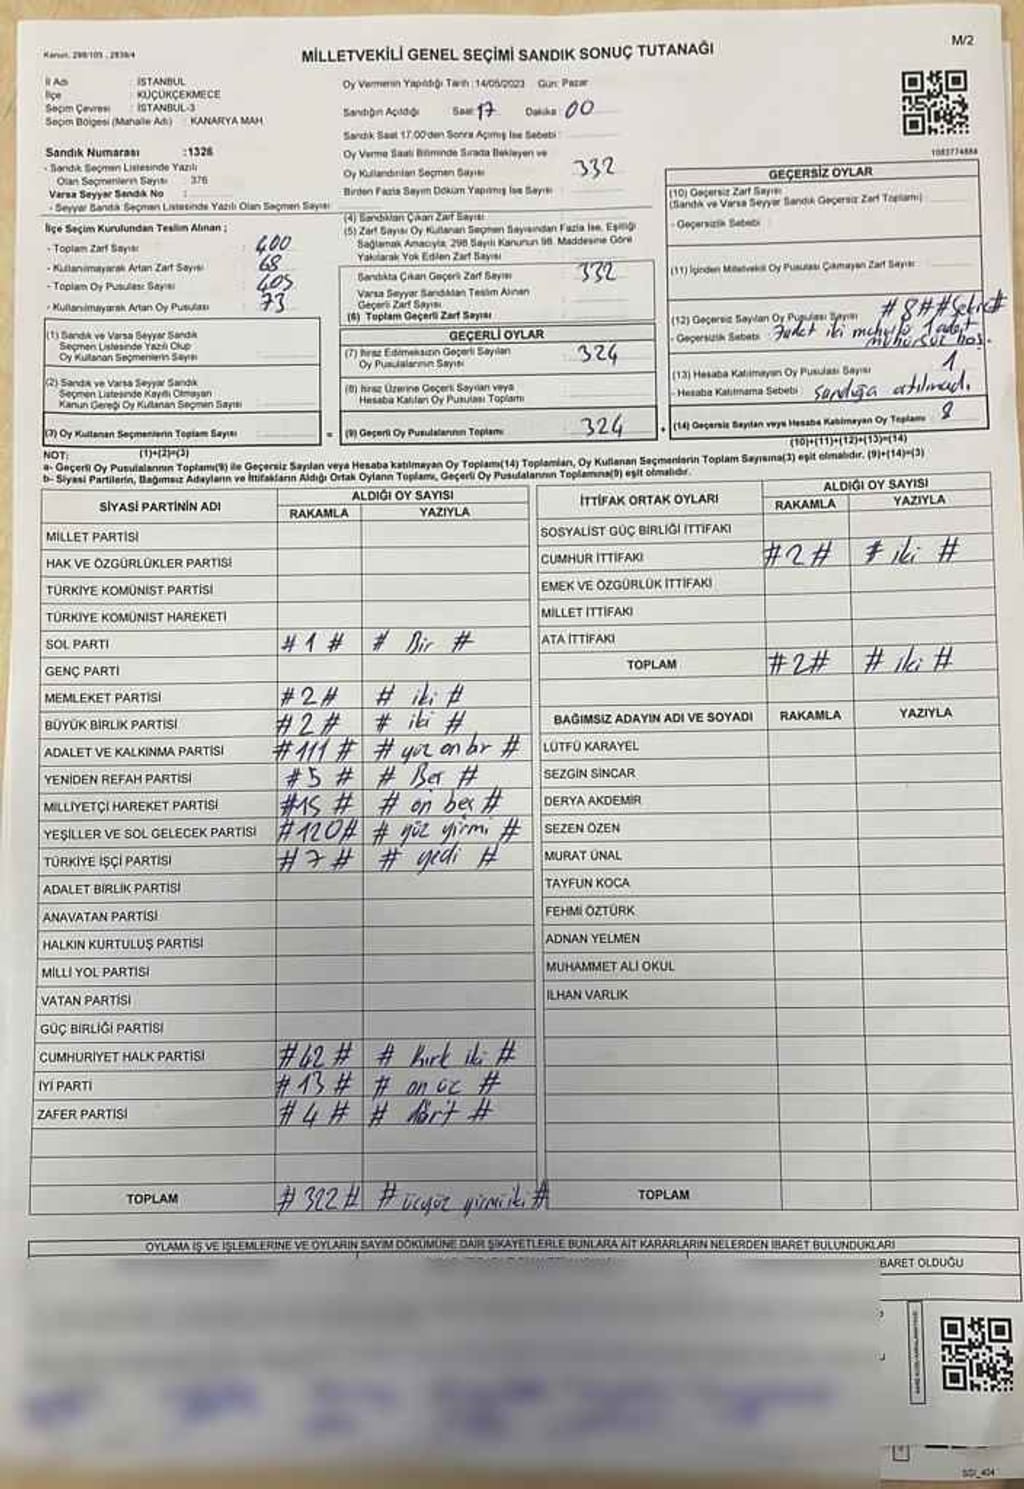 Kanun. 298/105 , 2839/4
MİLLETVEKİLİ GENEL SEÇİMİ SANDIK SONUÇ TUTANAĞI
M/2
İl Adı : İSTANBUL
İlçe : KÜÇÜKÇEKMECE
Seçim Çevresi : İSTANBUL-3
Seçim Bölgesi (Mahalle Adı) : KANARYA MAH.
Sandık Numarası :1326
- Sandık Seçmen Listesinde Yazılı
Olan Seçmenlerin Sayısı : 376
Varsa Seyyar Sandık No :
- Seyyar Sandık Seçmen Listesinde Yazılı Olan Seçmen Sayısı
İlçe Seçim Kurulundan Teslim Alınan ;
- Toplam Zarf Sayısı : 400
- Kullanılmayarak Artan Zarf Sayısı : 68
- Toplam Oy Pusulası Sayısı : 405
- Kullanılmayarak Artan Oy Pusulası : 73
(1) Sandık ve Varsa Seyyar Sandık
Seçmen Listesinde Yazılı Olup
Oy Kullanan Seçmenlerin Sayısı
(2) Sandık ve Varsa Seyyar Sandık
Seçmen Listesinde Kayıtlı Olmayan
Kanun Gereği Oy Kullanan Seçmen Sayısı
(3) Oy Kullanan Seçmenlerin Toplam Sayısı
(1)+(2)=(3)
Oy Vermenin Yapıldığı Tarih : 14/05/2023 Gün: Pazar
Sandığın Açıldığı Saat 17 Dakika 00
Sandık Saat 17.00'den Sonra Açılmış İse Sebebi :
Oy Verme Saati Bitiminde Sırada Bekleyen ve
Oy Kullandırılan Seçmen Sayısı : 332
Birden Fazla Sayım Döküm Yapılmış İse Sayısı :
(4) Sandıktan Çıkan Zarf Sayısı :
(5) Zarf Sayısı Oy Kullanan Seçmen Sayısından Fazla İse, Eşitliği
Sağlamak Amacıyla, 298 Sayılı Kanunun 98. Maddesine Göre
Yakılarak Yok Edilen Zarf Sayısı
Sandıkta Çıkan Geçerli Zarf Sayısı : 332
Varsa Seyyar Sandıktan Teslim Alınan
Geçerli Zarf Sayısı
(6) Toplam Geçerli Zarf Sayısı
GEÇERLİ OYLAR
(7) İtiraz Edilmeksizin Geçerli Sayılan
Oy Pusulalarının Sayısı : 324
(8) İtiraz Üzerine Geçerli Sayılan veya
Hesaba Katılan Oy Pusulası Toplamı
= (9) Geçerli Oy Pusulalarının Toplamı 324 +
1083774884
GEÇERSİZ OYLAR
(10) Geçersiz Zarf Sayısı
(Sandık ve Varsa Seyyar Sandık Geçersiz Zarf Toplamı)
- Geçersizlik Sebebi :
(11) İçinden Milletvekili Oy Pusulası Çıkmayan Zarf Sayısı :
(12) Geçersiz Sayılan Oy Pusulası Sayısı # 8 #
- Geçersizlik Sebebi iki mühür 1 adet
mühürsüz boş.
(13) Hesaba Katılmayan Oy Pusulası Sayısı 1
- Hesaba Katılmama Sebebi : sandığa atılmadı.
(14) Geçersiz Sayılan veya Hesaba Katılmayan Oy Toplamı 8
(10)+(11)+(12)+(13)=(14)
NOT:
a- Geçerli Oy Pusulalarının Toplamı(9) ile Geçersiz Sayılan veya Hesaba katılmayan Oy Toplamı(14) Toplamları, Oy Kullanan Seçmenlerin Toplam Sayısına(3) eşit olmalıdır. (9)+(14)=(3)
b- Siyasi Partilerin, Bağımsız Adayların ve İttifakların Aldığı Ortak Oyların Toplamı, Geçerli Oy Pusulalarının Toplamına(9) eşit olmalıdır.
SİYASİ PARTİNİN ADI ALDIĞI OY SAYISI
RAKAMLA YAZIYLA
MİLLET PARTİSİ
HAK VE ÖZGÜRLÜKLER PARTİSİ
TÜRKİYE KOMÜNİST PARTİSİ
TÜRKİYE KOMÜNİST HAREKETİ
SOL PARTİ # 1 # # Bir #
GENÇ PARTİ
MEMLEKET PARTİSİ # 2 # # iki #
BÜYÜK BİRLİK PARTİSİ # 2 # # iki #
ADALET VE KALKINMA PARTİSİ # 111 # # yüz on bir #
YENİDEN REFAH PARTİSİ # 5 # # Beş #
MİLLİYETÇİ HAREKET PARTİSİ # 15 # # on beş #
YEŞİLLER VE SOL GELECEK PARTİSİ # 120 # # yüz yirmi #
TÜRKİYE İŞÇİ PARTİSİ # 7 # # yedi #
ADALET BİRLİK PARTİSİ
ANAVATAN PARTİSİ
HALKIN KURTULUŞ PARTİSİ
MİLLİ YOL PARTİSİ
VATAN PARTİSİ
GÜÇ BİRLİĞİ PARTİSİ
CUMHURİYET HALK PARTİSİ # 42 # # kırk iki #
İYİ PARTİ # 13 # # on üç #
ZAFER PARTİSİ # 4 # # dört #
TOPLAM # 322 # # üçyüz yirmi iki #
İTTİFAK ORTAK OYLARI ALDIĞI OY SAYISI
RAKAMLA YAZIYLA
SOSYALİST GÜÇ BİRLİĞİ İTTİFAKI
CUMHUR İTTİFAKI # 2 # # iki #
EMEK VE ÖZGÜRLÜK İTTİFAKI
MİLLET İTTİFAKI
ATA İTTİFAKI
TOPLAM # 2 # # iki #
BAĞIMSIZ ADAYIN ADI VE SOYADI RAKAMLA YAZIYLA
LÜTFÜ KARAYEL
SEZGİN SİNCAR
DERYA AKDEMİR
SEZEN ÖZEN
MURAT ÜNAL
TAYFUN KOCA
FEHMİ ÖZTÜRK
ADNAN YELMEN
MUHAMMET ALİ OKUL
İLHAN VARLIK
TOPLAM
OYLAMA İŞ VE İŞLEMLERİNE VE OYLARIN SAYIM DÖKÜMÜNE DAİR ŞİKAYETLERLE BUNLARA AİT KARARLARIN NELERDEN İBARET BULUNDUKLARI
BARET OLDUĞU
SGİ_404